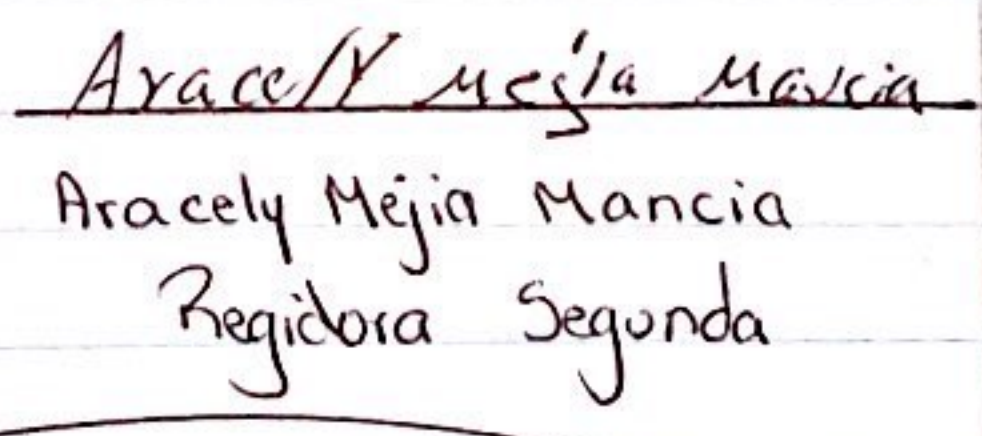 Aracely Mejía Mancia
Aracely Méjia Mancia
Regidora Segunda